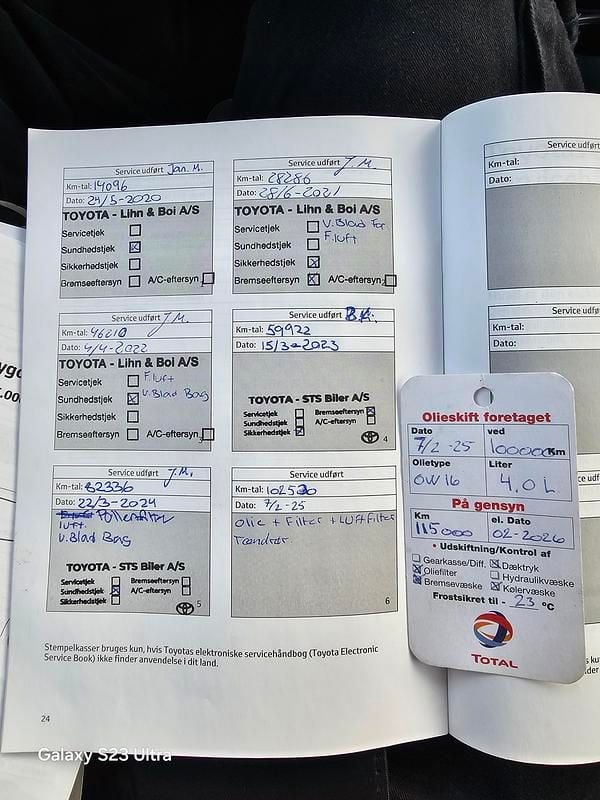 Service udført Jan. M.
Km-tal: 14096
Dato: 24/5-2020
TOYOTA - Lihn & Boi A/S
Servicetjek
Sundhedstjek
Sikkerhedstjek
Bremseeftersyn A/C-eftersyn
Service udført J.M.
Km-tal: 28286
Dato: 28/6-2021
TOYOTA - Lihn & Boi A/S
Servicetjek V. Blad For
Sundhedstjek F. luft
Sikkerhedstjek
Bremseeftersyn A/C-eftersyn
2
Service udført J.M.
Km-tal: 46010
Dato: 4/4-2022
TOYOTA - Lihn & Boi A/S
Servicetjek F. luft
Sundhedstjek V. Blad Bag
Sikkerhedstjek
Bremseeftersyn A/C-eftersyn
3
Service udført B.K.
Km-tal: 59922
Dato: 15/3-2023
TOYOTA - STS Biler A/S
Servicetjek Bremseeftersyn
Sundhedstjek A/C-eftersyn
Sikkerhedstjek
4
Service udført J.M.
Km-tal: 82336
Dato: 22/3-2024
Pollenfilter
luft.
V. Blad Bag
TOYOTA - STS Biler A/S
Servicetjek Bremseeftersyn
Sundhedstjek A/C-eftersyn
Sikkerhedstjek
5
Service udført
Km-tal: 102520
Dato: 7/2-25
Olie + Filter + Luftfilter
Tændrør.
6
Stempelkasser bruges kun, hvis Toyotas elektroniske servicehåndbog (Toyota Electronic
Service Book) ikke finder anvendelse i dit land.
24
Service udf
Km-tal:
Dato:
Service udf
Km-tal:
Dato:
Olieskift foretaget
Dato ved
7/2-25 100000 Km
Olietype Liter
0W16 4.0 L
På gensyn
Km el. Dato
115000 02-2026
• Udskiftning/Kontrol af
Gearkasse/Diff. Dæktryk
Oliefilter Hydraulikvæske
Bremsevæske Kølervæske
Frostsikret til - 23 °C
TOTAL
Galaxy S23 Ultra